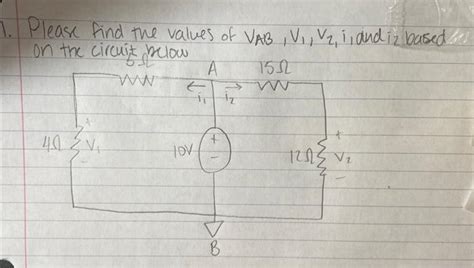 1. Please find the values of VAB, V1, V2, i1 and i2 based
on the circuit below
A 15Ω
i1 i2
+ + +
4Ω V1 10V 12Ω V2
- - -
B